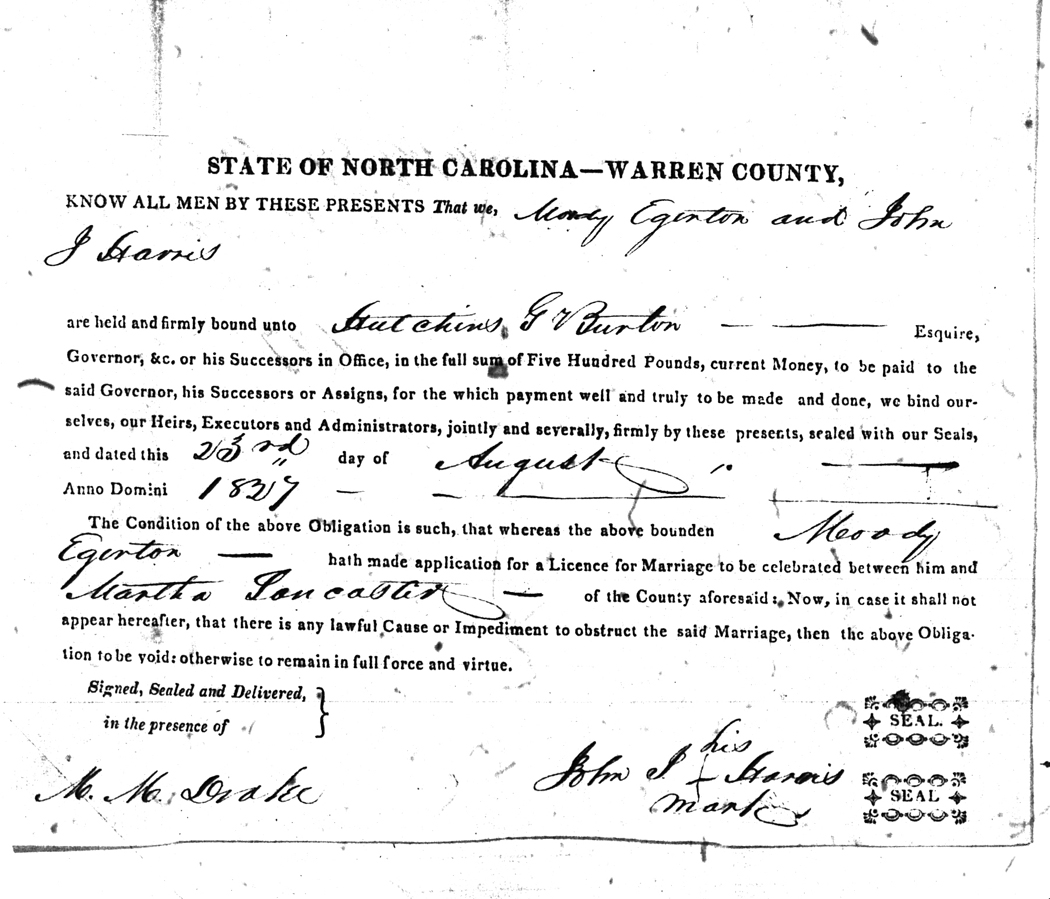 STATE OF NORTH CAROLINA—WARREN COUNTY,
KNOW ALL MEN BY THESE PRESENTS That we, Moody Egerton and John
J Harris
are held and firmly bound unto Hutchins G Burton — — Esquire,
Governor, &c. or his Successors in Office, in the full sum of Five Hundred Pounds, current Money, to be paid to the
said Governor, his Successors or Assigns, for the which payment well and truly to be made and done, we bind our-
selves, our Heirs, Executors and Administrators, jointly and severally, firmly by these presents, sealed with our Seals,
and dated this 23rd day of August
Anno Domini 1827 — —
The Condition of the above Obligation is such, that whereas the above bounden Moody
Egerton — hath made application for a Licence for Marriage to be celebrated between him and
Martha Lancaster — of the County aforesaid: Now, in case it shall not
appear hereafter, that there is any lawful Cause or Impediment to obstruct the said Marriage, then the above Obliga-
tion to be void: otherwise to remain in full force and virtue.
Signed, Sealed and Delivered,
in the presence of
SEAL.
his
John J + Harris
mark
SEAL
M. M. Drake